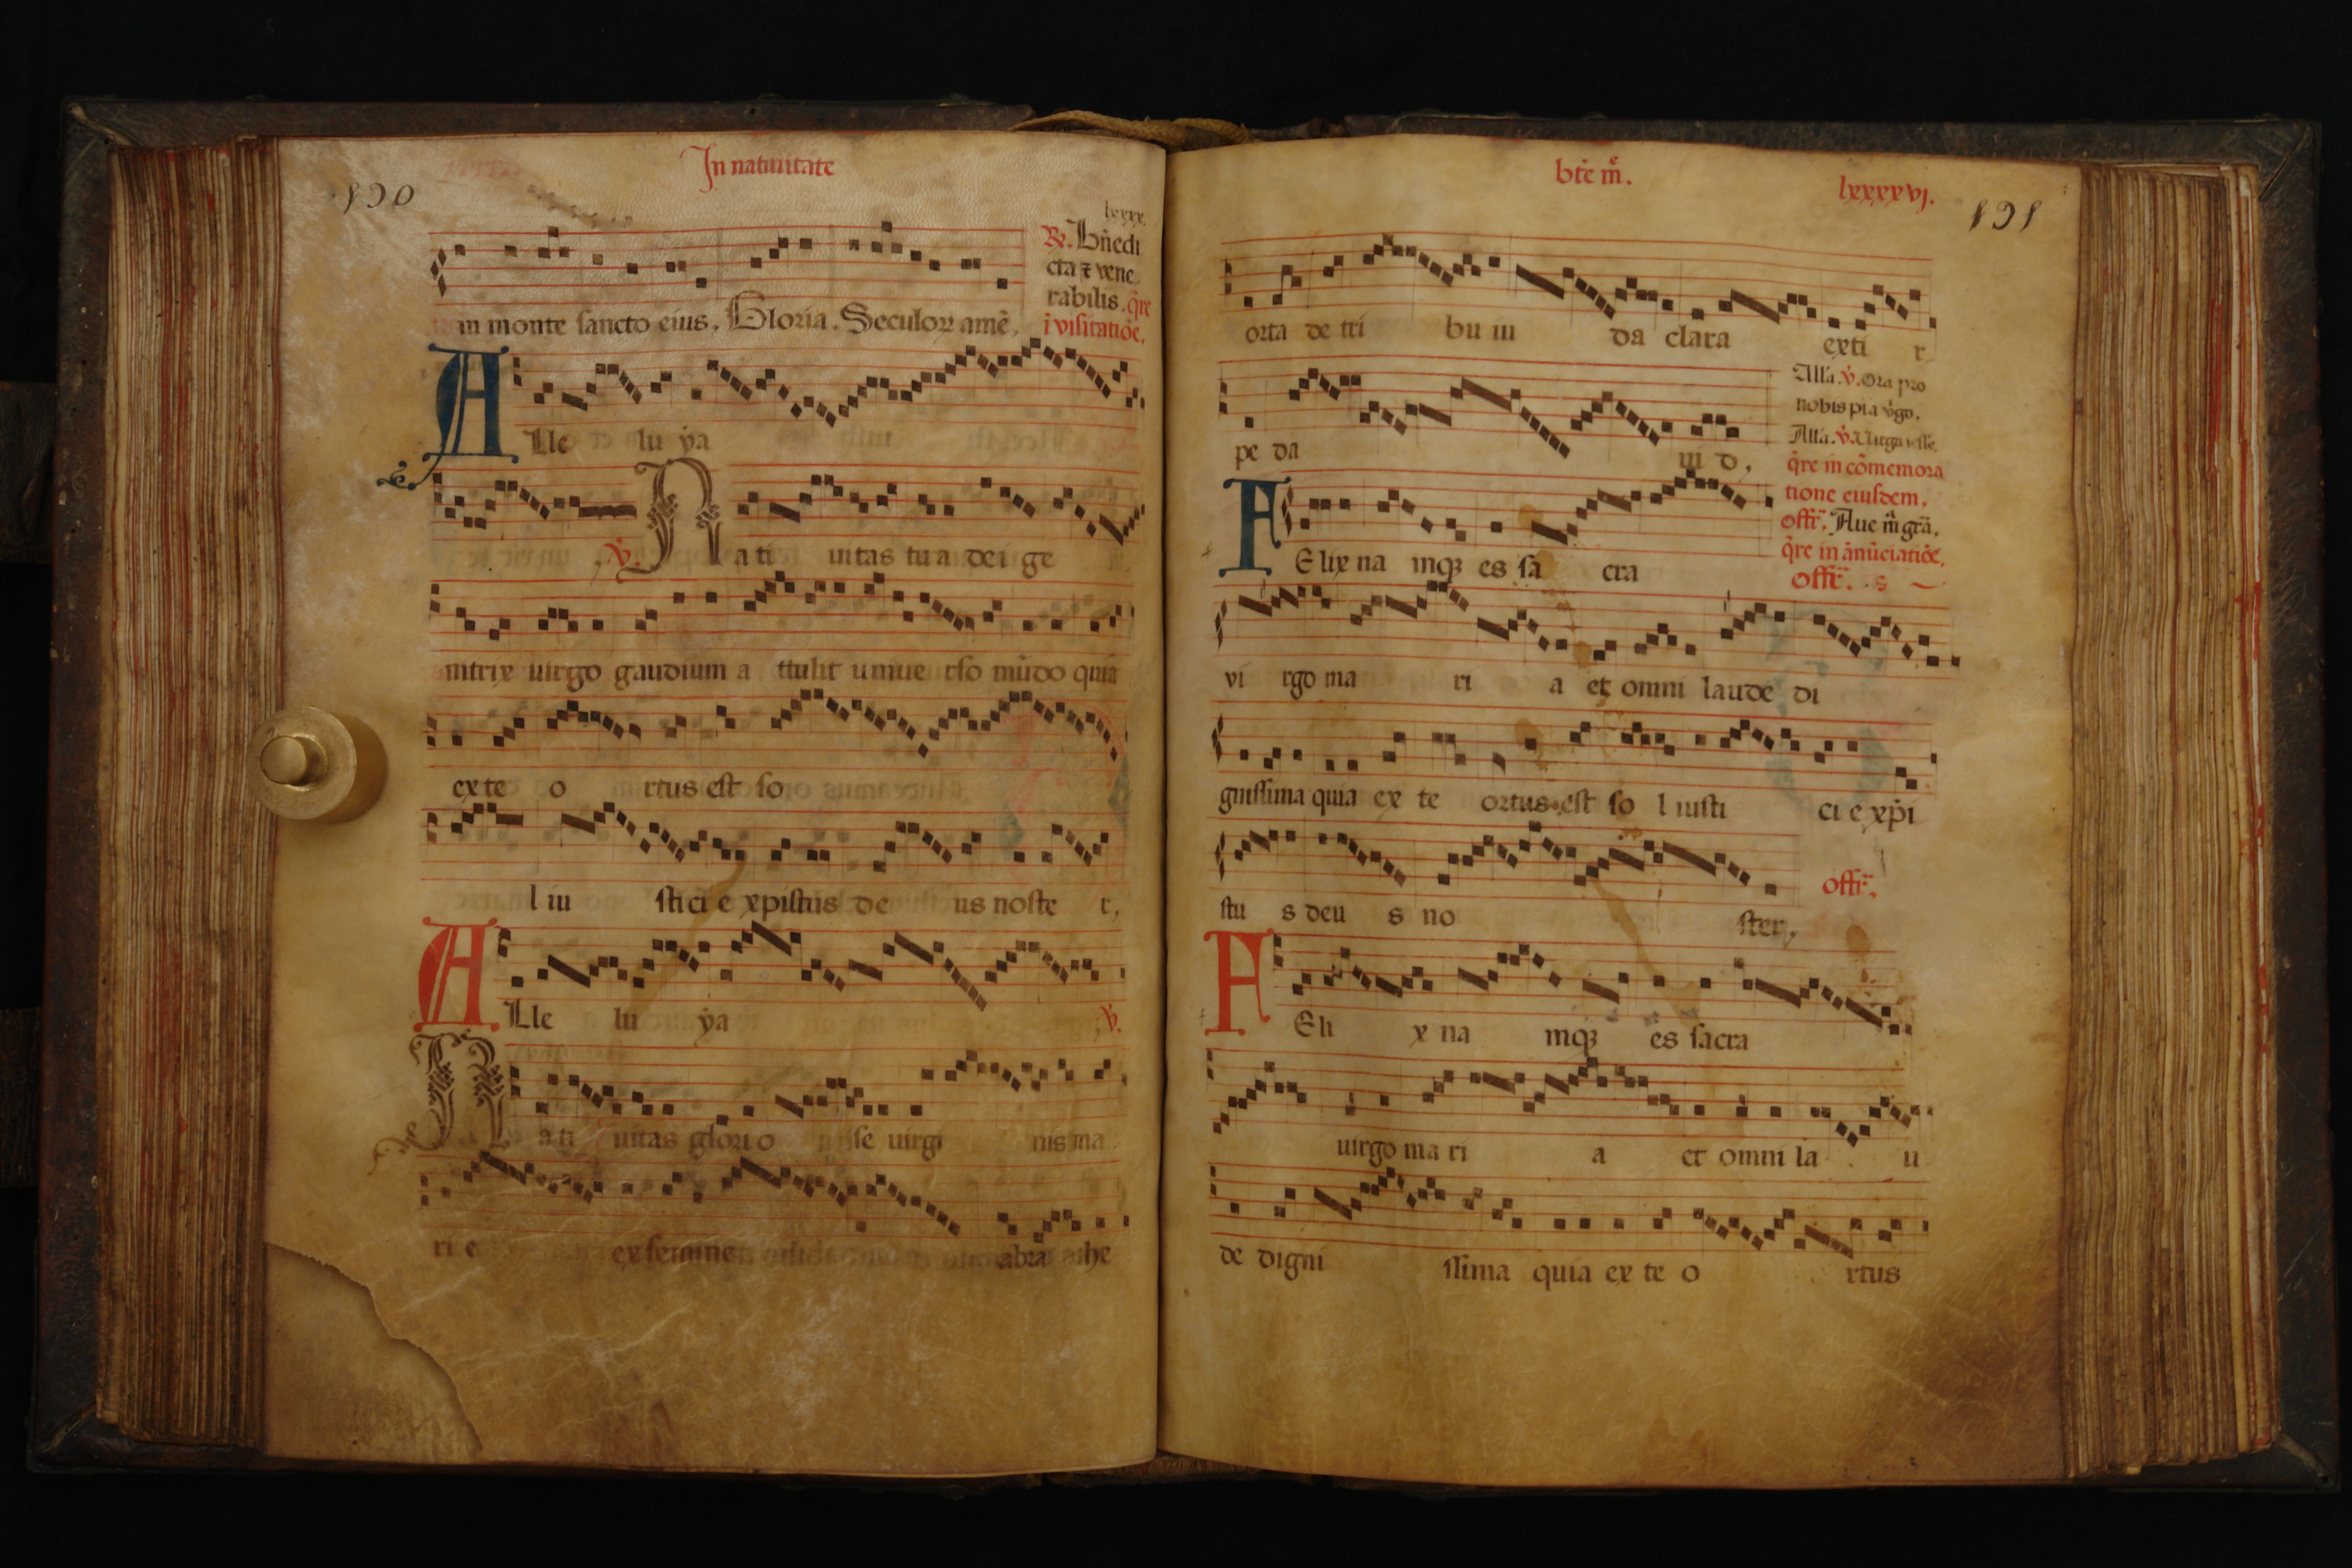 In natiuitate
190
in monte sancto eius. Gloria. Seculoꝝ amē.
lxxxx.
Re. Bn̄edi
cta ⁊ vene
rabilis. q̄re
ī visitatiōe.
A Lle lu ẏa
ꝟ. N ati uitas tu a dei ge
nitrix uirgo gaudium a ttulit uniue rso mūdo quia
ex te o rtus est so
l iu stici e xpistus de us noste r,
A Lle lu ẏa ꝟ.
N ati uitas glori o se uirgi nis ma
ri e ex semine abra he
btē m̄.
lxxxxvj.
191
orta de tri bu iu da clara exti r
pe da ui d.
Alla. ꝟ. Ora pro
nobis pia ꝟgo.
Alla. ꝟ. Uirga iesse.
q̄re in cōmemora
tione eiusdem.
offr̄. Aue m̄ gr̄a.
q̄re in ānūciatiōe.
offr̄.
F Elix na mqꝫ es sa cra
vi rgo ma ri a et omni laude di
gnissima quia ex te ortus est so l iusti ci e xp̄i
stu s deu s no ster,
offr̄.
F Eli x na mqꝫ es sacra
uirgo ma ri a et omni la u
de digni ssima quia ex te o rtus